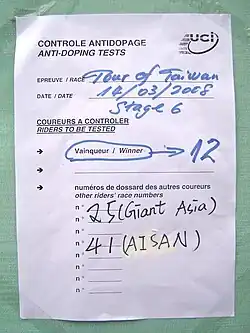 CONTROLE ANTIDOPAGE
ANTI-DOPING TESTS
uci
EPREUVE / RACE Tour of Taiwan
DATE / DATE 14/03/2008
Stage 6
COUREURS A CONTROLER
RIDERS TO BE TESTED
→ Vainqueur / Winner → 12
→
→
→ numéros de dossard des autres coureurs
other riders' race numbers
n° 25 (Giant Asia)
n°
n° 41 (AISAN)
n°
n°
n°
n°